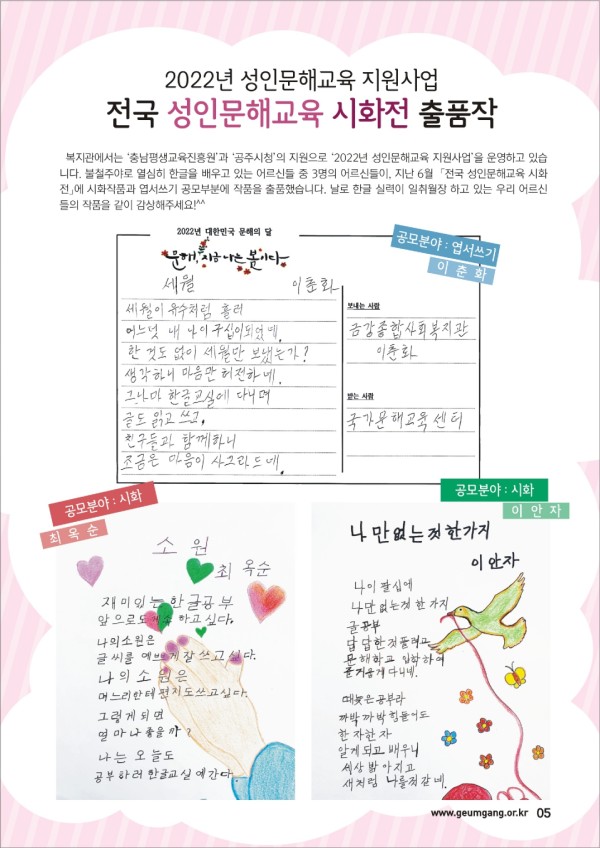 2022년 성인문해교육 지원사업
전국 성인문해교육 시화전 출품작
복지관에서는 ‘충남평생교육진흥원’과 ‘공주시청’의 지원으로 ‘2022년 성인문해교육 지원사업’을 운영하고 있습
니다. 불철주야로 열심히 한글을 배우고 있는 어르신들 중 3명의 어르신들이, 지난 6월 「전국 성인문해교육 시화
전」에 시화작품과 엽서쓰기 공모부분에 작품을 출품했습니다. 날로 한글 실력이 일취월장 하고 있는 우리 어르신
들의 작품을 같이 감상해주세요!^^
공모분야 : 엽서쓰기
이 춘 화
2022년 대한민국 문해의 달
문해, 지금 나는 봄이다
세월 이춘화
세월이 유수처럼 흘러
어느덧 내 나이 구십이되었네.
한 것도 없이 세월만 보냈는가?
생각하니 마음만 허전하네.
그나마 한글교실에 다니며
글도 읽고 쓰고,
친구들과 함께하니
조금은 마음이 사그라드네.
보내는 사람
금강종합사회복지관
이춘화
받는 사람
국가문해교육센터
공모분야 : 시화
최 옥 순
소 원
최 옥순
재미있는 한글공부
앞으로도 계속 하고 싶다.
나의소원은
글씨를 예쁘게 잘 쓰고 싶다.
나의 소원은
며느리한테 편지도쓰고싶다.
그렇게 되면
얼마나 좋을까?
나는 오늘도
공부하러 한글교실에 간다
공모분야 : 시화
이 안 자
나만없는것 한가지
이안자
나이 팔십에
나만없는것 한 가지
글공부
답답한것풀려고
문해학교 입학하여
즐거웁게다니네.
때늦은공부라
까막 까막 힘들어도
한 자한 자
알게되고 배우니
세상 밝아지고
새처럼 나를것같네.
www.geumgang.or.kr 05